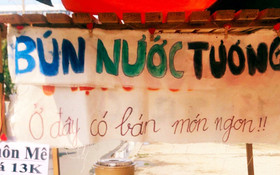 BÚN NƯỚC TƯƠNG
Ở đây có bán món ngon!!
Mê
13K